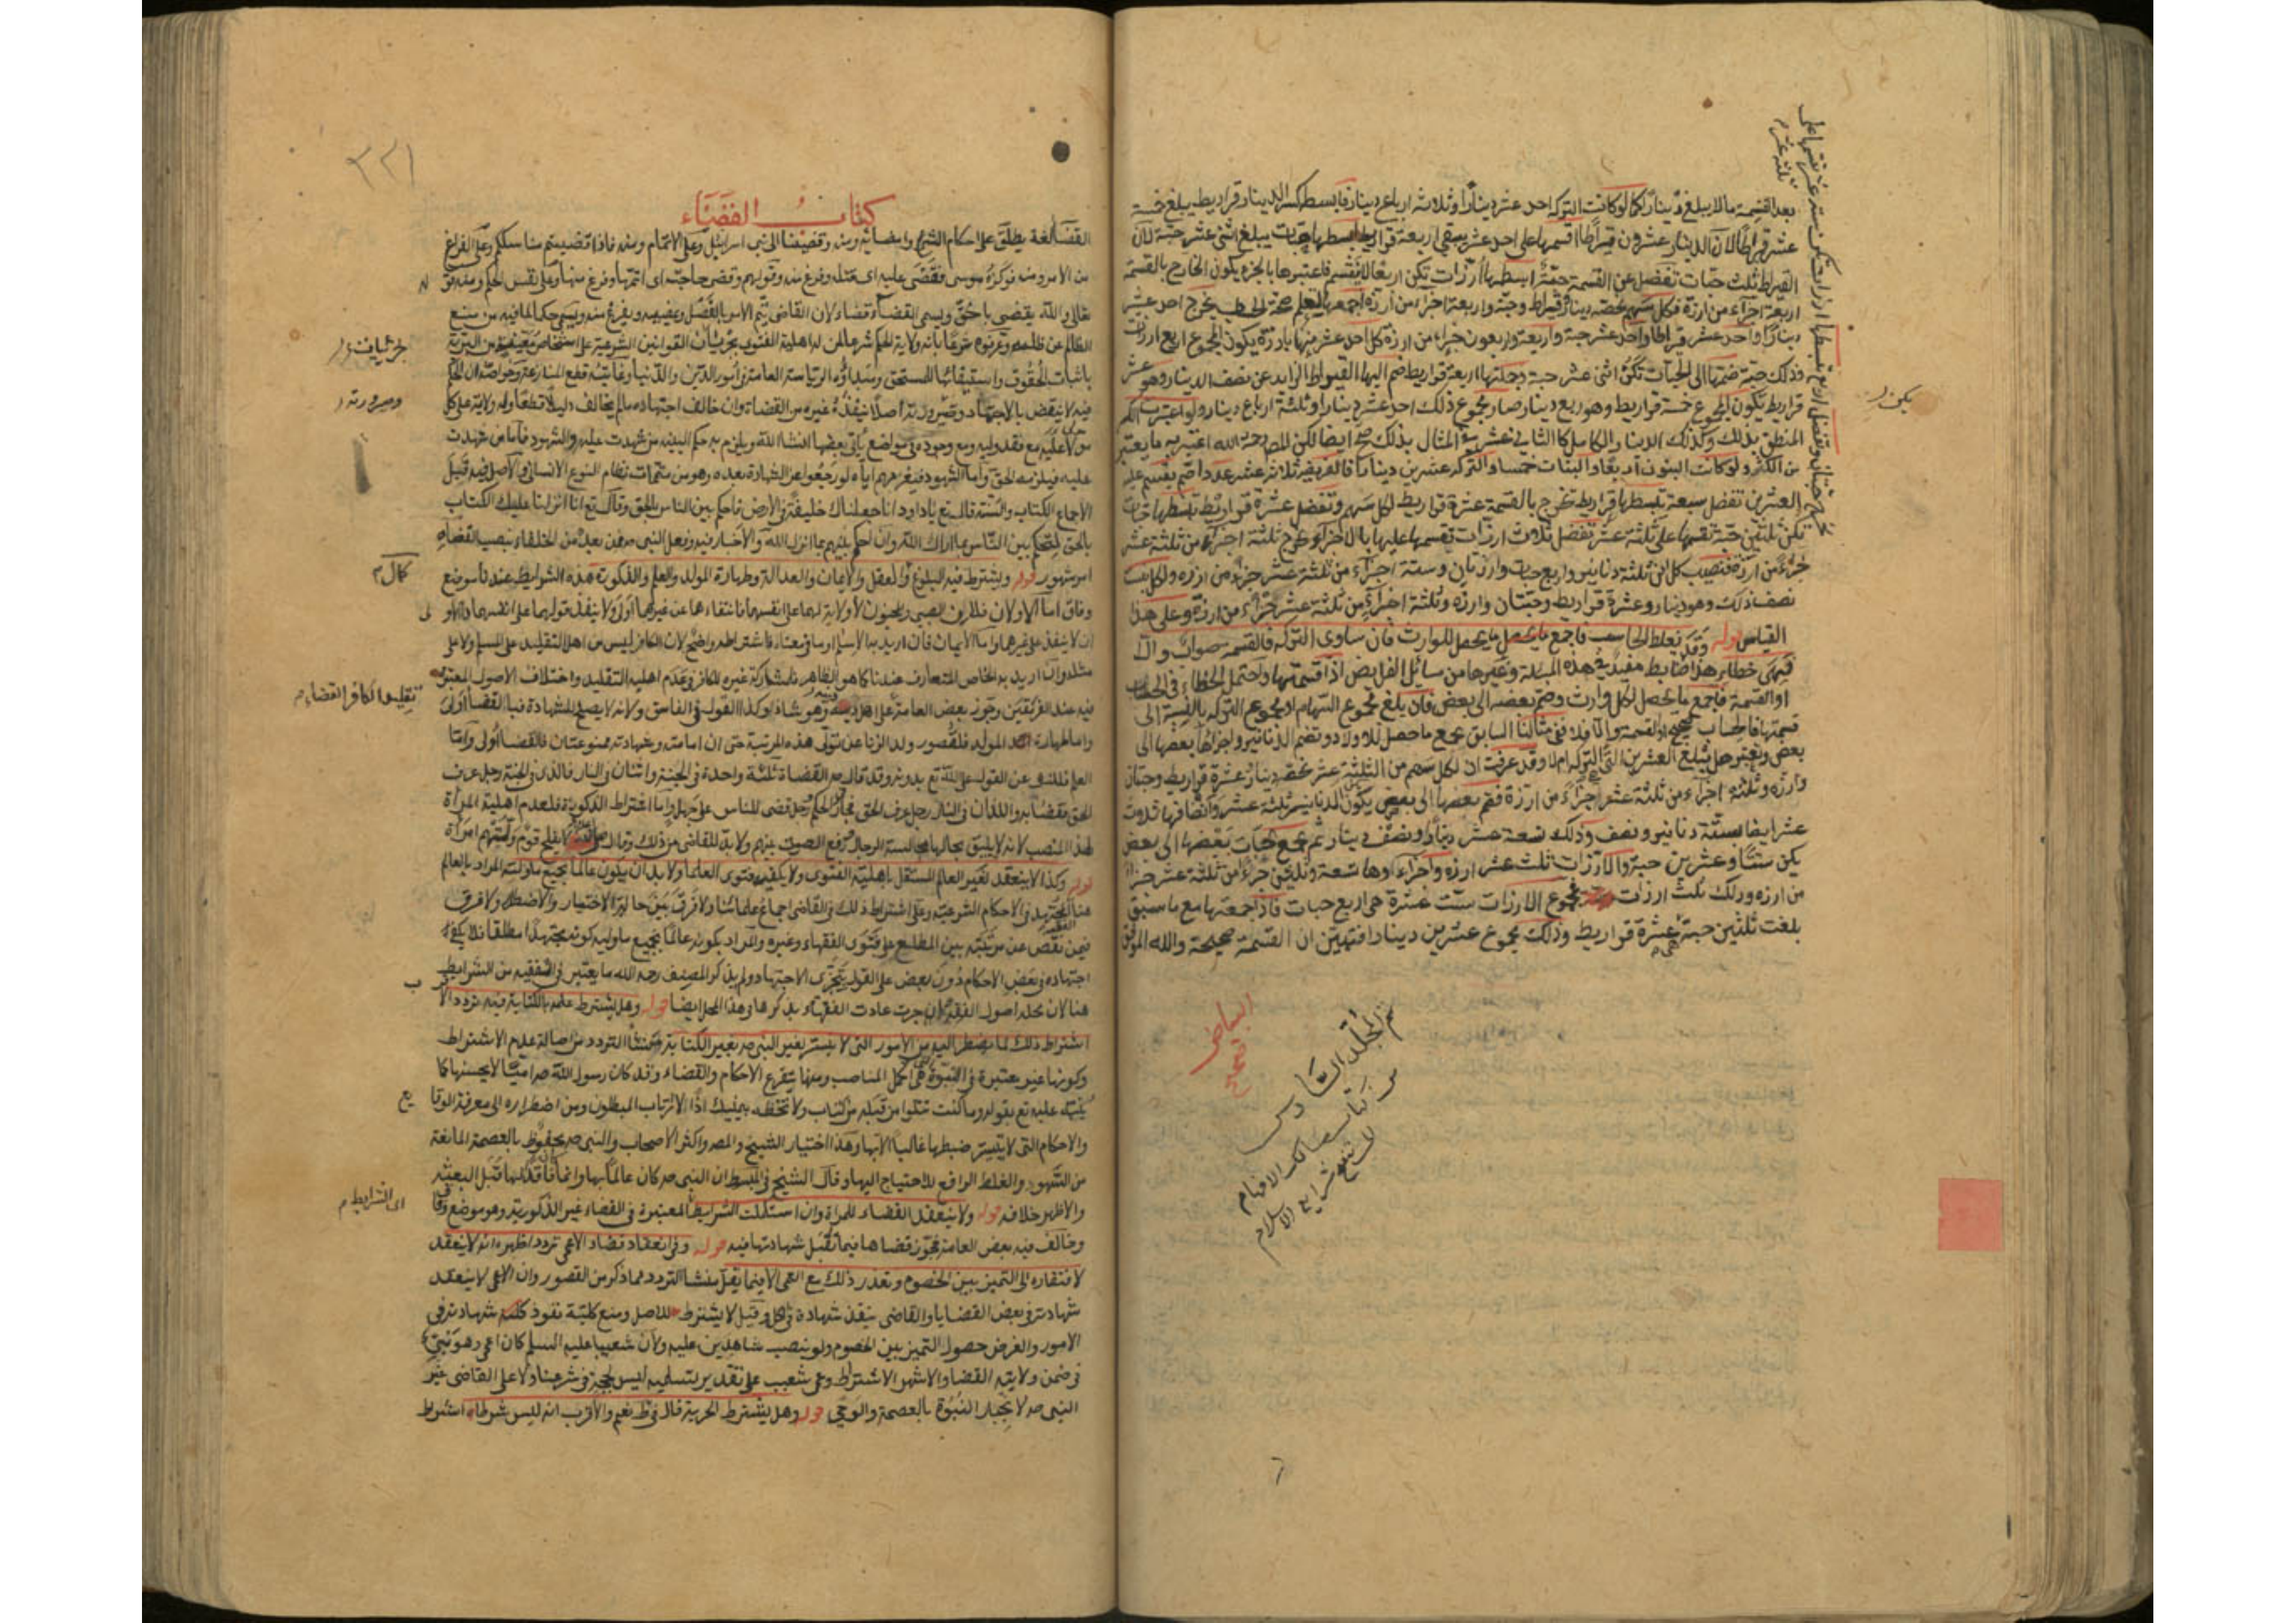 بعد القسمة ما لا يبلغ دينارا كما لو كانت التركة احد عشر دينارا وثلاثة ارباع دينار فابسط كسر الدينار قراريط يبلغ خمسة
عشر قيراطا لان الدينار عشرون قيراطا اقسمها على احد عشر يبقى اربعة قراريط ابسطها حبات يبلغ اثنى عشر حبة لان
القيراط ثلث حبات تفضل عن القسمة حبة ابسطها ارزات تكن اربعا لا ينقسم فاعتبرها بالجزء يكون الخارج بالقسمة
اربعة اجزاء من ارزة فكل سهم يخصه دينار وقيراط وحبة واربعة اجزاء من ارزة اجمعها لتعلم صحة الحساب يخرج احد عشر
دينارا واحد عشر قيراطا واحد عشر حبة واربعة واربعون جزءا من ارزة كل احد عشر منها بارزة يكون المجموع اربع ارزات
وذلك حبة ضمتها الى الحبات تكن اثنى عشر حبة وجملتها اربعة قراريط ضم اليها القيراط الزايد عن نصف الدينار وهو عشر
قراريط يكون المجموع خمسة قراريط وهو ربع دينار صار مجموع ذلك احد عشر دينارا وثلثة ارباع دينار ولو اعتبرت الكسر
من الكثر ولو كانت البنون اربعا والبنات خمسا والتركة عشرين دينارا فالفريضة ثلاثة عشر عدد اصم
العشرين تفضل سبعة تبسطها قراريط تخرج بالقسمة عشرة قراريط لكل سهم وتفضل عشرة قراريط تبسطها حبات
تكن ثلثين حبة تقسمها على ثلثة عشر تفضل ثلاث ارزات تقسمها عليها بالاجزاء تخرج ثلثة اجزاء من ثلثة عشر
جزءا من ارزة فنصيب كل ابن ثلثة دنانير واربع حبات وارزتان وستة اجزاء من ثلثة عشر جزءا من ارزه ولكل بنت
نصف ذلك وهو دينار وعشرة قراريط وحبتان وارزه وثلثة اجزاء من ثلثة عشر جزءا من ارزة وعلى هذا
القياس قوله وقد يغلط الحاسب فاجمع ما يحصل للوارث فان ساوى التركة فالقسمة صواب والا
فهي خطا هذا ضابط مفيد في هذه المسئلة وغيرها من مسائل الفرايض اذا قسمتها واحتمل الخطاء في الحساب
او القسمة فاجمع ما يحصل لكل وارث وضم بعضه الى بعض فان بلغ مجموع السهام مجموع التركه بالنسبة الى
قسمتها فالحساب صحيح والقسمة والا فلا ففي مثالنا السابق تجمع ما حصل للاولاد وتضم الدنانير واجزائها بعضها الى
بعض وتعتبر هل تبلغ العشرين التي التركة ام لا وقد عرفت ان لكل سهم من الثلثة عشر يخصه دينار وعشرة قراريط وحبتان
وارزه وثلثة اجزاء من ثلثة عشر اجزاء من ارزة فضم بعضها الى بعض يكون الدنانير ثلثة عشر وانصافها ثلاث
عشر ايضا ستة دنانير ونصف وذلك تسعة عشر دينارا ونصف دينار ثم تجمع حبات بعضها الى بعض
يكن ستة وعشرين حبة والارزات ثلث عشر ارزه واجزاءها تسعة وثلثين جزءا من ثلثة عشر جزءا
من ارزه وذلك ثلث ارزات مجموع الارزات ست عشرة هي اربع حبات فاذا جمعتها مع ما سبق
بلغت ثلثين حبة هي عشرة قراريط وذلك مجموع عشرين دينارا فتبين ان القسمة صحيحة والله الموفق
البياض صحيح
تم المجلد السادس
من كتاب مسالك الافهام
لتنقيح شرايع الاسلام
٣٢١
كتاب القضاء
القضا لغة يطلق على احكام الشئ وامضائه ومنه وقضينا الى بنى اسرائيل وعلى الاتمام ومنه فاذا قضيتم مناسككم وعلى الفراغ
من الامر ومنه فوكزه موسى فقضى عليه اى قتله وفرغ منه وقولهم وقضى حاجته اى اتمها وفرغ منها وعلى نفس الحكم ومنه قوله
تعالى والله يقضى بالحق ويسمى القضاء قضاء لان القاضى يتم الامر بالفصل ويمضيه ويفرغ منه ويسمى حكما لما فيه من منع
الظالم عن ظلمه وعرفوه شرعا بانه ولاية الحكم شرعا لمن له اهلية الفتوى بجزئيات القوانين الشرعية على اشخاص معينة من البرية
باثبات الحقوق واستيفائها للمستحق ومبداؤه الرياسة العامة في امور الدين والدنيا وغايته قطع المنازعة وخواصه ان الحكم
فيه لا ينقض بالاجتهاد وصيرورته اصلا ينفذه غيره من القضاة وان خالف اجتهاده ما لم يخالف دليلا قطعيا وله ولاية على كل
مولى عليه مع فقد وليه ومع وجوده في مواضع ياتى بعضها انشاء الله ويلزم به حكم البينة من شهدت عليه والشهود فاما من شهدت
عليه فيلزمه الحق واما الشهود فيغرمهم اياه لو رجعوا عن الشهادة بعده وهو من متممات نظام النوع الانسانى والاصل فيه قبل
الاجماع الكتاب والسنة قال تع يا داود انا جعلناك خليفة في الارض فاحكم بين الناس بالحق وقال تع انا انزلنا عليك الكتاب
بالحق لتحكم بين الناس بما اراك الله وان احكم بينهم بما انزل الله والاخبار فيه وفعل النبى ص ومن بعده من الخلفاء بنصب القضاة
امر مشهور قوله ويشترط فيه البلوغ والعقل والايمان والعدالة وطهارة المولد والعلم والذكورة هذه الشرايط عندنا موضع
وفاق اما الاولان فلان الصبى والمجنون لا ولاية لهما على انفسهما فانتفاءها عن غيرهما اولى ولا ينفذ قولهما على انفسهما
ان لا ينفذ على غيرهما واما الايمان فان اريد به الاسلام او ما فى معناه فاشتراطه واضح لان الكافر ليس من اهل التقليد على المسلم ولا على
مثله وان اريد به الخاص المتعارف عندنا كما هو الظاهر فلمشاركة غيره للكافر في عدم اهلية التقليد واختلاف الاصول المعتبرة
فيه عند الفريقين وجوز بعض العامة على اهل دينه وهو شاذ وكذا القول في الفاسق ولانه لا يصلح للشهادة فبا القضاء اولى
واما طهارة المولد فلقصور ولد الزنا عن تولى هذه المرتبة حتى ان امامته وشهادته ممنوعتان فالقضا اولى واما
العلم فللنهى عن القول على الله تع بدونه وقد قال ص القضاة ثلثة واحدة في الجنة واثنان في النار فالذى في الجنة رجل عرف
الحق فقضا به واللذان في النار رجل عرف الحق فجار في الحكم ورجل قضى للناس على جهل واما اشتراط الذكورة فلعدم اهلية المراة
لهذا المنصب لانه لا يليق بحالها مجالسة الرجال ورفع الصوت بينهم ولا بد للقاضى من ذلك وقال ص لا يفلح قوم وليتهم امراة
قوله وكذا لا ينعقد لغير العالم المستقل باهلية الفتوى ولا يكفيه فتوى العلماء ولا بد ان يكون عالما بجميع ما وليه المراد بالعالم
هنا المجتهد في الاحكام الشرعية وعلى اشتراط ذلك في القاضى اجماع علمائنا ولا فرق بين حالة الاختيار والاضطرار ولا فرق
فيمن نقص عن مرتبته بين المطلع على فتوى الفقهاء وغيره والمراد بكونه عالما بجميع ما وليه كونه مجتهدا مطلقا فلا يكفى
اجتهاده في بعض الاحكام دون بعض على القول بتجزى الاجتهاد ولم يذكر المصنف رحمه الله ما يعتبر في الفقيه من الشرايط
هنا لان محله اصول الفقه وان جرت عادت الفقهاء بذكرها في هذا المحل ايضا قوله وهل يشترط علمه بالكتابة فيه تردد الاظهر
اشتراط ذلك لما يضطر اليه من الامور التى لا يتيسر لغير النبى ص بغير الكتابة منشا التردد من اصالة عدم الاشتراط
وكونها غير معتبرة في النبوة وهى اكمل المناصب ومنها يتفرع الاحكام والقضاء وقد كان رسول الله ص اميا لا يحسنها كما
نبه عليه تع بقوله وما كنت تتلوا من قبله من كتاب ولا تخطه بيمينك اذا لارتاب المبطلون ومن اضطراره الى معرفة الوقايع
والاحكام التى لا يتيسر ضبطها غالبا الا بها وهذا اختيار الشيخ والمصه واكثر الاصحاب والنبى ص محفوظ بالعصمة المانعة
من السهو والغلط الرافع للاحتياج اليها وقال الشيخ في المبسوط ان النبى ص كان عالما بها وانما كان فاقدا لها قبل البعثة
والاظهر خلافه قوله ولا ينعقد القضاء للمراة وان استكملت الشرايط المعتبرة في القضاء غير الذكورية وهو موضع وفاق
وخالف فيه بعض العامة فجوز قضاها فيما تقبل شهادتها فيه قوله وفى انعقاد قضاء الاعمى تردد اظهره انه لا ينعقد
لافتقاره الى التميز بين الخصوم وتعذر ذلك مع العمى الا فيما يقل منشا التردد مما ذكر من القصور وان الاعمى لا ينعقد
شهادته في بعض القضايا والقاضى ينفذ شهادة في الكل وقيل لا يشترط للاصل ومنع كلية نفوذ شهادته في
الامور والغرض حصول التميز بين الخصوم ولو بنصب شاهدين عليه ولان شعيبا عليه السلم كان اعمى وهو نبى
في ضمن ولايته القضا والاشهر الاشتراط وعمى شعيب على تقدير تسليمه ليس بحجة في شرعنا ولا على القاضى غير
النبى ص لانجبار النبوة بالعصمة والوحى قوله وهل يشترط الحرية قال في ط نعم والاقرب انه ليس شرطا اشتراط
بجزئيات
وصيرورته
كمال م
تقليد الكافر القضاء م
اى الشرايط م